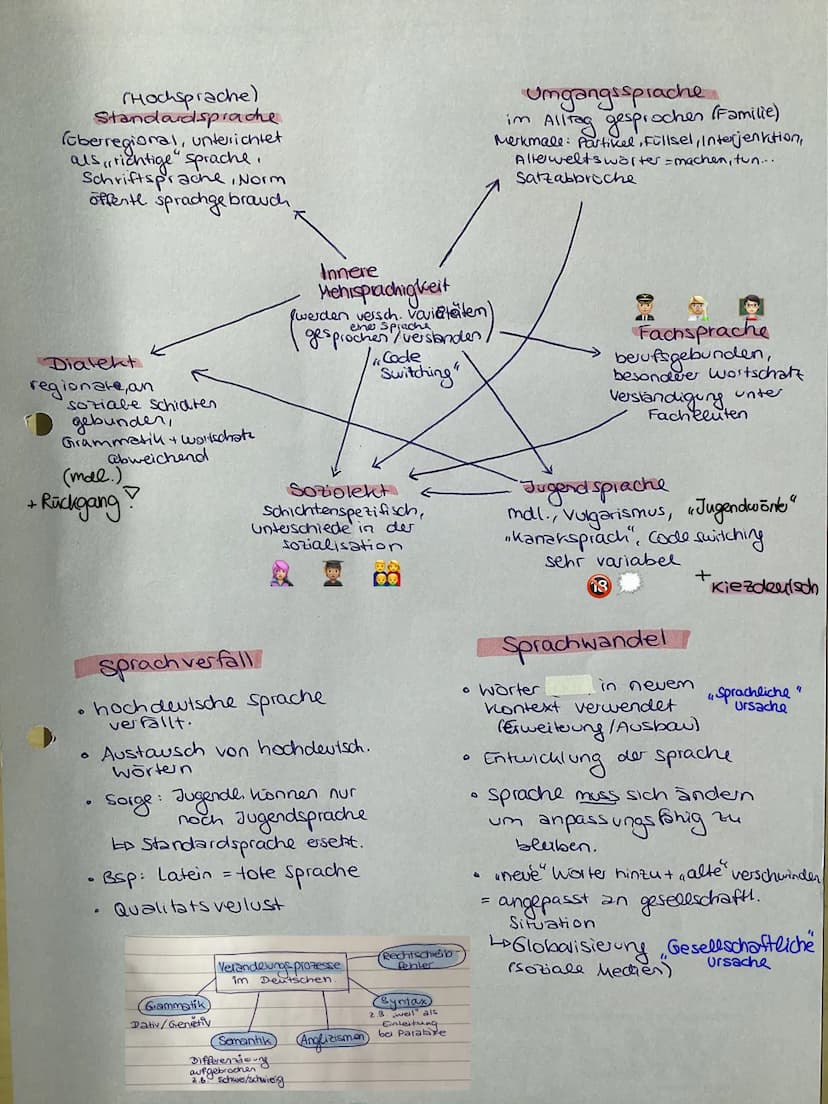 (Hochsprache)
Standardsprache
(überregional, unterrichtet
als „richtige" Sprache,
Schriftsprache, Norm
öffentl Sprachgebrauch
Umgangssprache
im Alltag gesprochen (Familie)
Merkmale: Partikel, Füllsel, Interjenktion,
Allerweltswörter = machen, tun...
Satzabbrüche
Innere
Mehrsprachigkeit
(werden versch. Varietäten)
einer Sprache
gesprochen / verstanden
„Code
Switching"
Dialekt
regionale, an
soziale Schichten
gebunden,
Grammatik + Wortschatz
abweichend
(mdl.)
+ Rückgang!
Fachsprache
berufsgebunden,
besonderer Wortschatz
Verständigung unter
Fachleuten
Soziolekt
Schichtenspezifisch,
unterschiede in der
sozialisation
Jugendsprache
mdl., Vulgarismus, „Jugendwörter"
„Kanaksprach", Code switching
sehr variabel
18
+ Kiezdeutsch
Sprachverfall
• hochdeutsche Sprache
verfällt.
• Austausch von hochdeutsch.
Wörtern
• Sorge: Jugendl. können nur
noch Jugendsprache
↳ Standardsprache ersetzt.
• Bsp: Latein = tote Sprache
• Qualitätsverlust
Sprachwandel
• Wörter in neuem
Kontext verwendet
(Erweiterung / Ausbau)
„Sprachliche"
Ursache
• Entwicklung der Sprache
• Sprache muss sich ändern
um anpassungsfähig zu
bleiben.
• „neue" Wörter hinzu + „alte" verschwinden
= angepasst an gesellschaftl.
Situation
↳ Globalisierung
(soziale Medien)
„Gesellschaftliche"
Ursache
Veränderungsprozesse
im Deutschen
Rechtschreib
fehler
Grammatik
Dativ / Genetiv
Syntax
z.B „weil" als
Einleitung
bei Parataxe
Semantik
Differenzierung
aufgebrochen
z.B schwer/schwierig
Anglizismen